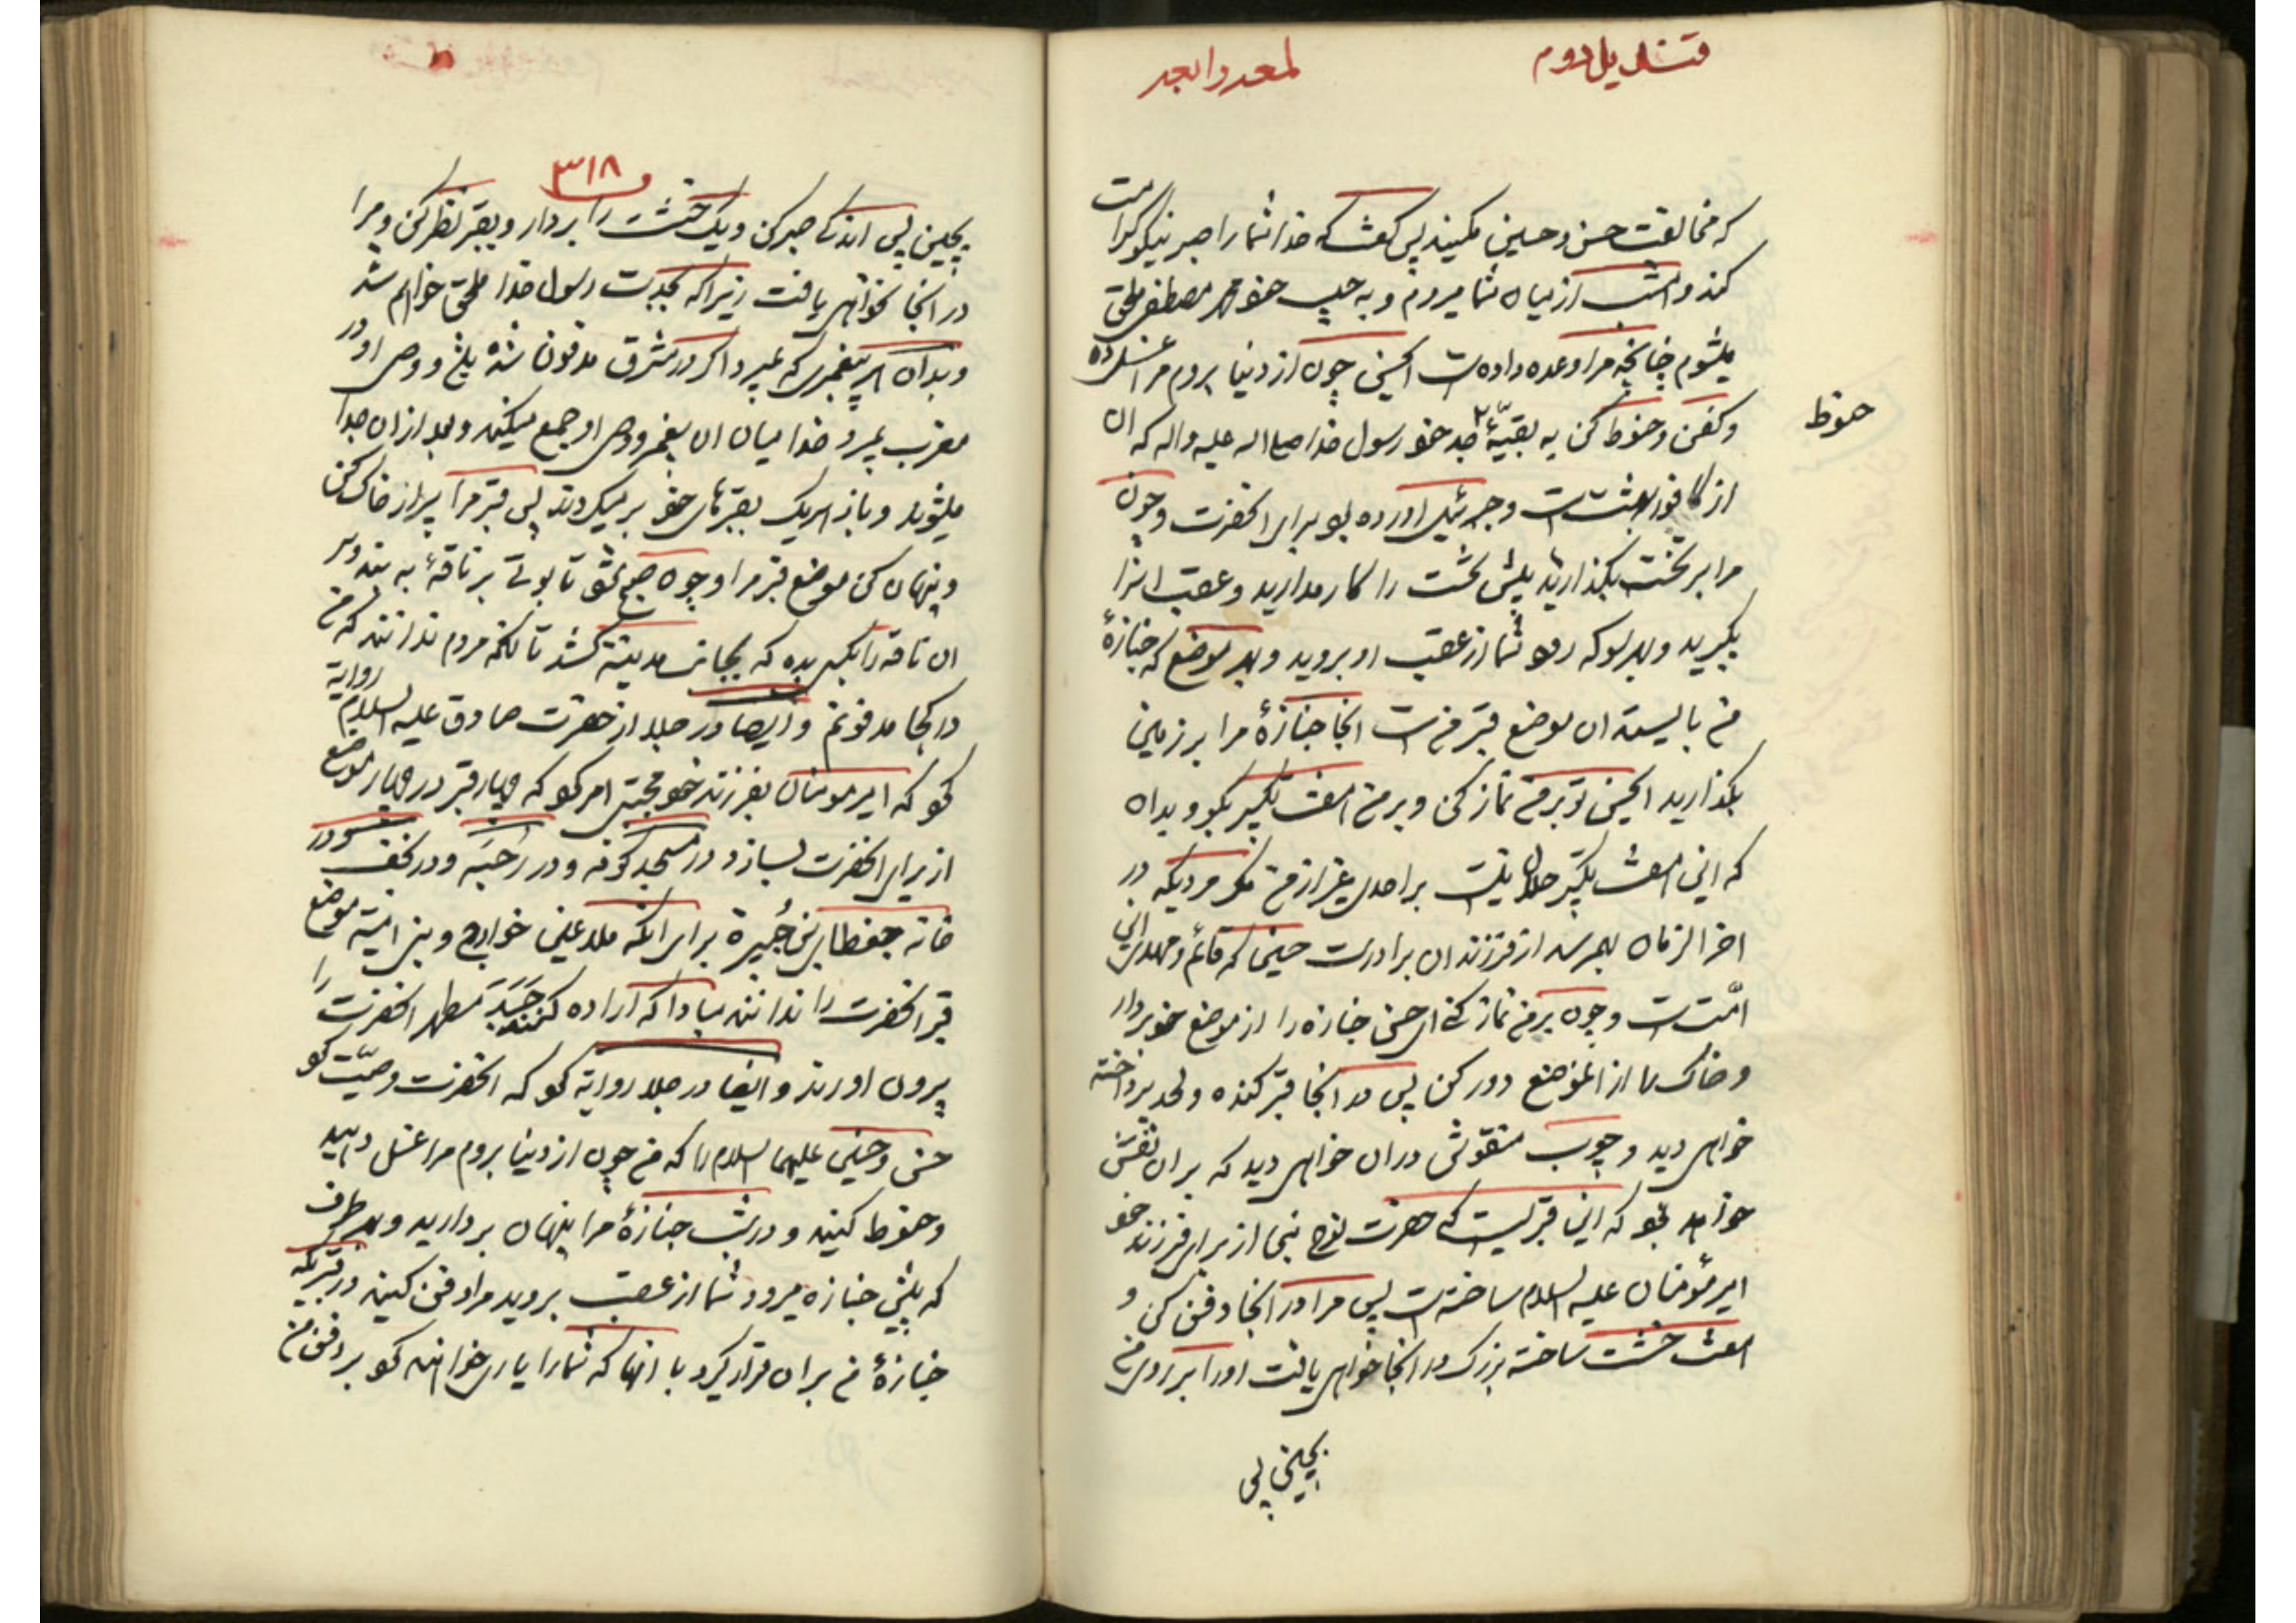 قندیل دوم
که مخالفت حسن و حسین مکنید پس گفت که خدا شما را صبر نیکو کرامت
کند و امشب از میان شما میروم و به حبیب خود محمد مصطفی ملحق
میشوم چنانچه مرا وعده داده است ای حسن چون از دنیا بروم مرا غسل ده
و کفن و حنوط کن به بقیّهٔ جد خود رسول خدا صلی الله علیه واله که ان
حنوط
از کافور بهشت است و جبرئیل اورده بود برای انحضرت و چون
مرا بر تخت بگذارید پیش تخت را کار مدارید و عقب انرا
بگیرید و بهر سو که رود شما از عقب او بروید و بهر موضع که جنازهٔ
من بایستد ان موضع قبر من است انجا جنازهٔ مرا بر زمین
بگذارید ای حسن تو بر من نماز کن و بر من هفت تکبیر بگو و بدان
که این هفت تکبیر حلال نیست بر احدی غیر از من مگر مردیکه در
اخر الزمان بهمرسد از فرزندان برادرت حسین که قائم و مهدی این
امّت است و چون بر من نماز کنی ای حسن جنازه را از موضع خود بردار
و خاک را از انموضع دور کن پس در انجا قبر کنده و لحد پرداخته
خواهی دید و چوب منقوشی در ان خواهی دید که بر ان نقش
خواهد بود که این قبریست که حضرت نوح نبی از برای فرزند خود
امیر مؤمنان علیه السلام ساخته است پس مرا در انجا دفن کن و
هفت خشت ساخته بزرگ در انجا خواهی یافت اورا بر روی من
بچین پس
۳۱۸
بچین پس اندکی صبر کن و یک خشت را بردار و بقبر نظر کن و مرا
در انجا نخواهی یافت زیرا که بجدت رسول خدا ملحق خواهم شد
و بدان هر پیغمبری که بمیرد اگر در مشرق مدفون شده باشد و وصی او در
مغرب بمیرد خدا میان ان پیغمبر و وصی او جمع میکند و بعد از ان جدا
میشوند و باز هر یک بقبرهای خود بر میگردند پس قبر مرا پر از خاک کن
و پنهان کن موضع قبر مرا و چون صبح شود تابوتی بر ناقهٔ به بند و سر
ان ناقه را بکسی بده که بجانب مدینه کشد تا انکه مردم ندانند که من
در کجا مدفونم و ایضا در جلا از حضرت صادق علیه السلام روایة
کو که امیر مومنان بفرزند خود مجتبی امر کو که چهار قبر در چهار موضع
از برای انحضرت بسازد در مسجد کوفه و در رَحبَه و در نجف و در
خانه جعدة ابن هُبیرة برای انکه ملاعین خوارج و بنی امیّة موضع
قبر انحضرت را ندانند مبادا که اراده کنند جَسَدِ مطهر انحضرت را
بیرون اورند و ایضا در جلا روایة کو که انحضرت وصیّت کو
حسن و حسین علیهما السلام را که من چون از دنیا بروم مرا غسل دهید
و حنوط کنید و در شب جنازهٔ مرا پنهان بردارید و بهر طرف
که پیش جنازه میرود شما از عقب بروید مرا دفن کنید در قبریکه
جنازهٔ من بر ان قرار گیرد با انها که شما را یاری خواهند کو بر دفن من